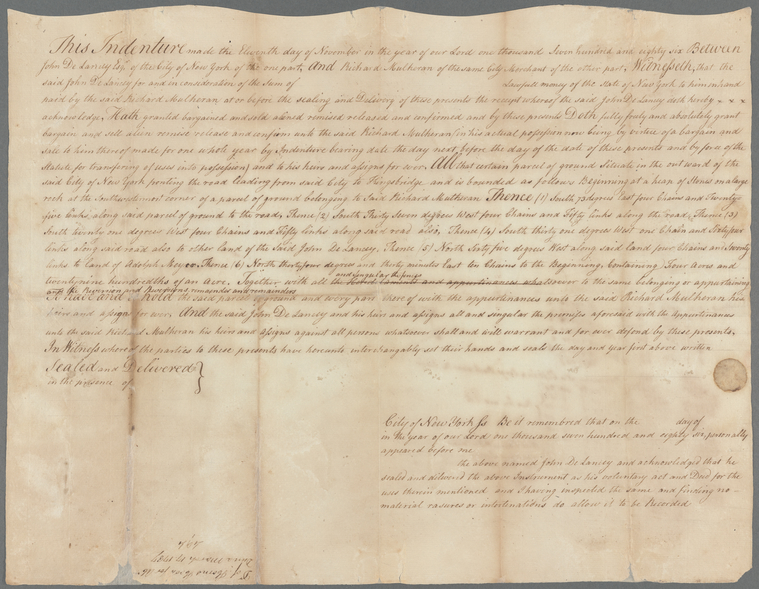 This Indenture made the Eleventh day of November in the year of our Lord one thousand Seven hundred and eighty six Between
John De Lancey Esqr. of the City of New York of the one part, And Richard Mulheran of the same City Merchant of the other part, Witnesseth, that the
said John De Lancey for and in consideration of the Sum of Lawful money of the State of New York to him in hand
paid by the said Richard Mulheran at or before the sealing and Delivery of these presents the receipt whereof the said John De Lancey doth hereby
acknowledge, Hath granted bargained and sold aliened remised released and confirmed and by these presents Doth fully freely and absolutely grant
bargain and sell alien remise release and confirm unto the said Richard Mulheran (in his actual possession now being by virtue of a bargain and
sale to him thereof made for one whole year by Indenture bearing date the day next before the day of the date of these presents and by force of the
Statute for transfering of uses into possession) and to his heirs and assigns for ever. All that certain parcel of ground Situate in the out ward of the
said City of New York fronting the road leading from said City to Kingsbridge and is bounded as follows Beginning at a heap of stones on a large
rock at the Southwestermost corner of a parcel of ground belonging to Said Richard Mulheran Thence (1) South degrees East four Chains and Twenty
five links along said parcel of ground to the road, Thence (2) South Thirty Seven degrees West four Chains and Fifty links along the road, Thence (3)
South twenty one degrees West four Chains and Fifty links along said road also, Thence (4) South thirty one degrees West one Chain and Sixty four
links along said road also to other land of the Said John De Lancey, Thence (5) North Sixty five degrees West along said land four Chains and Seventy
links to land of Adolph Thence (6) North thirty four degrees and thirty minutes East ten Chains to the Beginning, Containing Four Acres and
and Singular the
twenty nine hundredths of an Acre, Together with all the and appurtenances whatsoever to the same belonging or appertaining
and the Reversion and Reversions remainder and remainders
To have and to hold the said parcel of ground and every part thereof with the appurtenances unto the said Richard Mulheran his
heirs and assigns for ever. And the said John De Lancey and his heirs and assigns all and singular the premises aforesaid with the Appurtenances
unto the said Richard Mulheran his heirs and assigns against all persons whatsoever shall and will warrant and for ever defend by these presents.
In Witness whereof the parties to these presents have hereunto interchangably set their hands and seals the day and year first above written
Sealed and Delivered
in the presence of
City of New York Ss Be it remembred that on the day of
in the year of our Lord one thousand seven hundred and eighty six personally
appeared before me
the above named John De Lancey and acknowledged that he
sealed and delivered the above Instrument as his voluntary act and Deed for the
uses therein mentioned and I having inspected the same and finding no
material rasures or interlineations do allow it to be Recorded